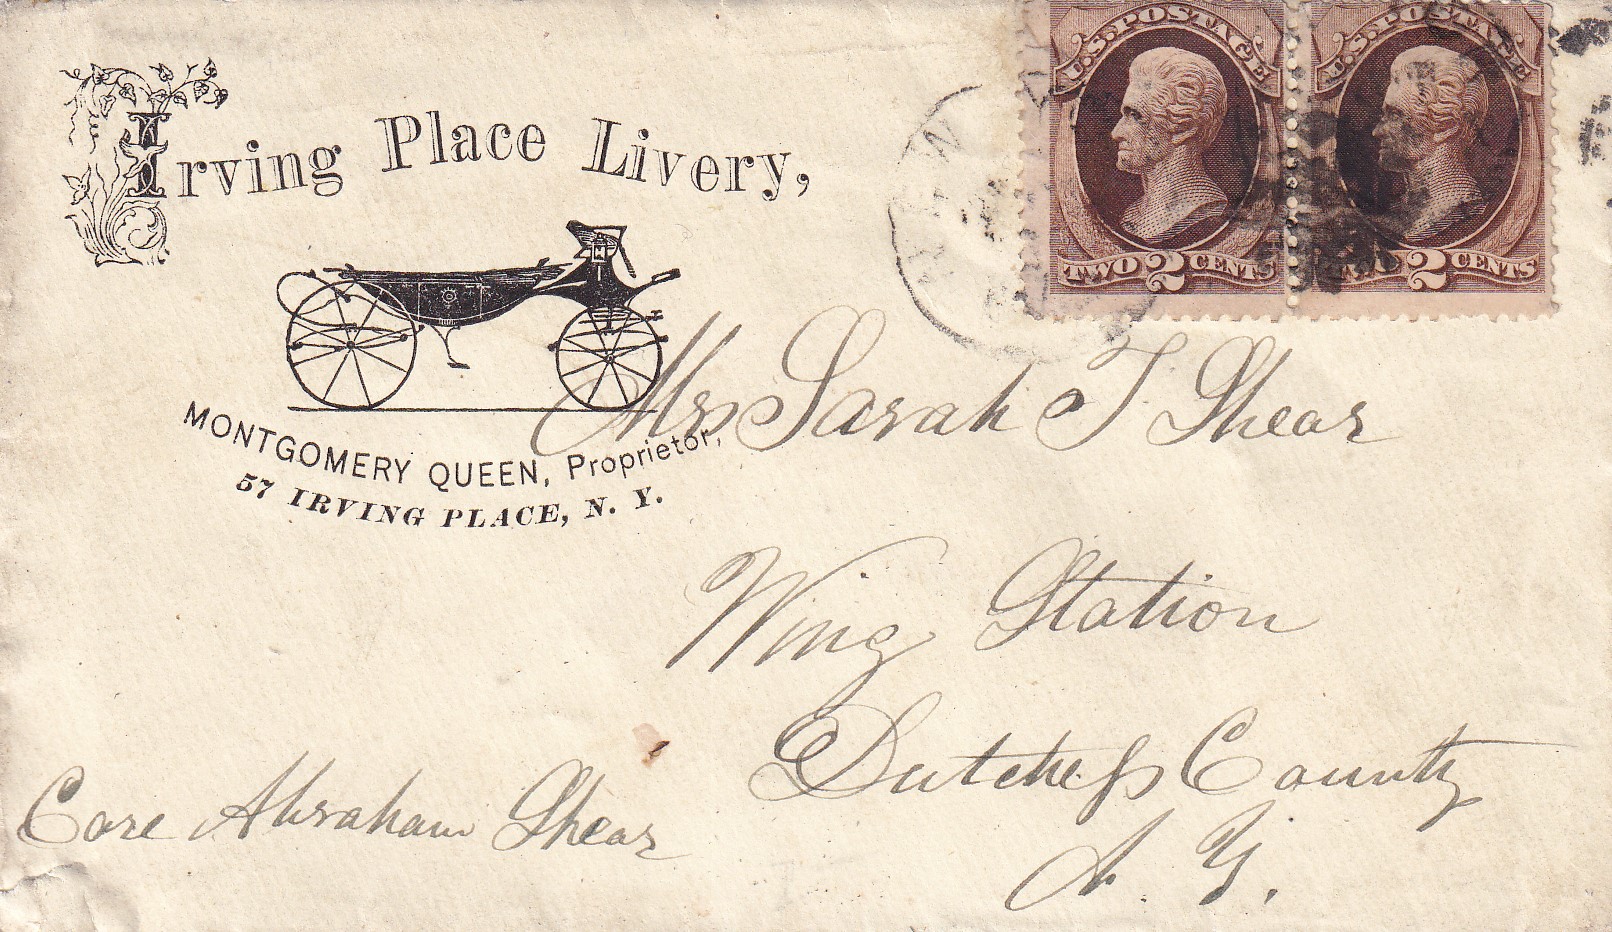 Irving Place Livery,
MONTGOMERY QUEEN, Proprietor,
57 IRVING PLACE, N. Y.
U.S. POSTAGE
TWO 2 CENTS
U.S. POSTAGE
TWO 2 CENTS
NEW
Mrs Sarah T Shear
Wing Station
Dutchess County
N. Y.
Care Abraham Shear